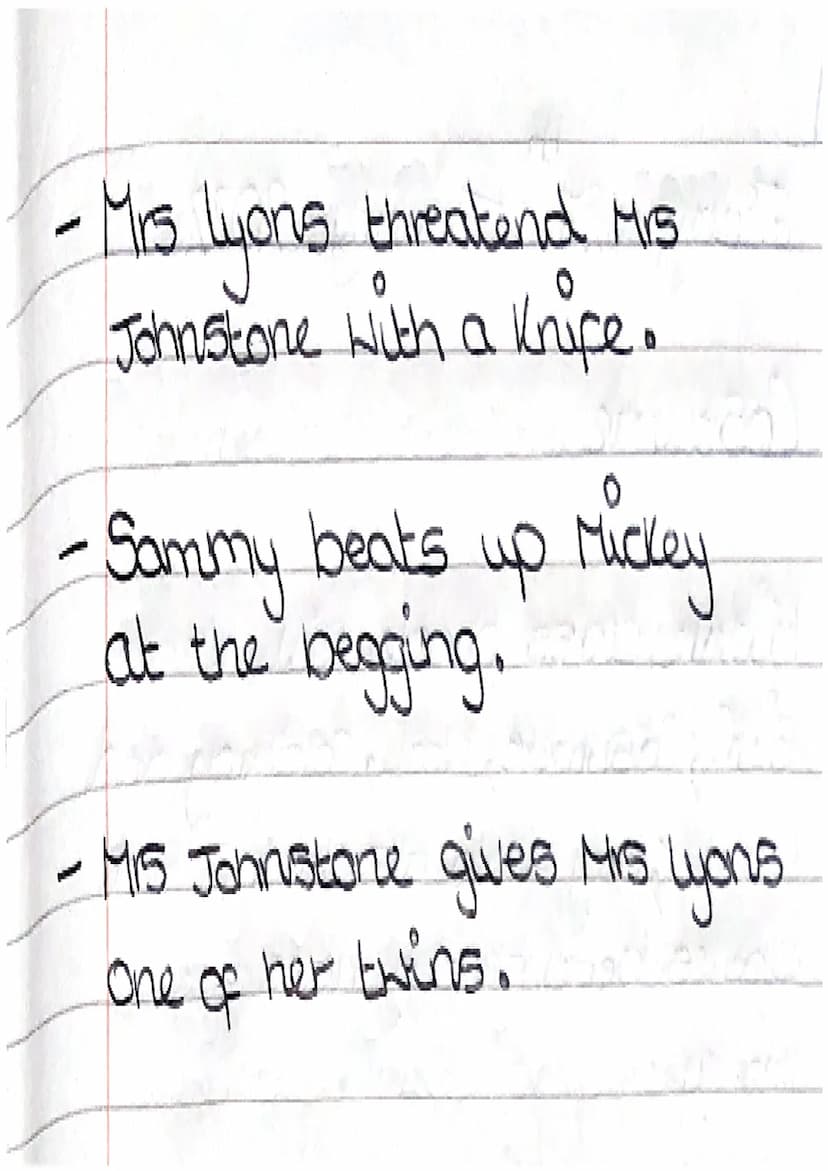 - Mrs Lyons threatend Mrs
Johnstone with a knife.
- Sammy beats up Mickey
at the begging.
- Mrs Johnstone gives Mrs Lyons
one of her twins.